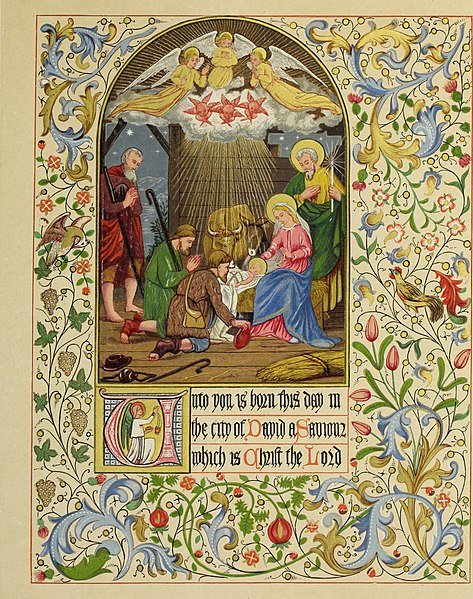 Unto you is born this day in
the city of David a Saviour
which is Christ the Lord